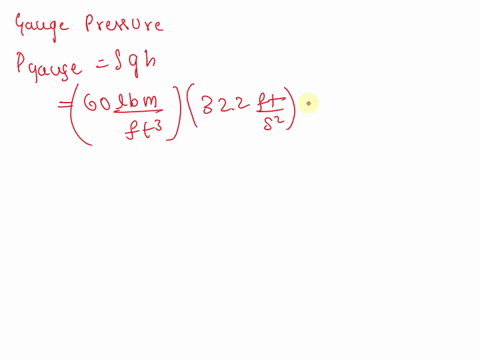 Gauge Pressure
Pgauge = ρgh
= (60 lbm/ft³) (32.2 ft/s²)